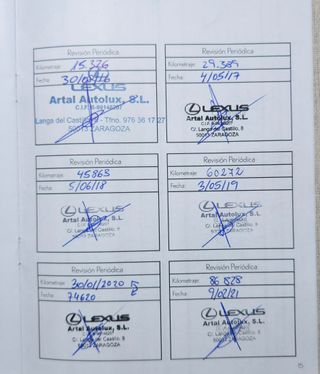 Revisión Periódica
Kilometraje: 15.326
Fecha: 30/05/16
LEXUS
Artal Autolux, S.L.
Langa del Castillo, 8 - Tfno. 976 36 17 27
50013 ZARAGOZA
Revisión Periódica
Kilometraje: 29.389
Fecha: 4/05/17
LEXUS
Artal Autolux, S.L.
C/. Langa del Castillo, 8
50013 ZARAGOZA
Revisión Periódica
Kilometraje: 45863
Fecha: 5/06/18
LEXUS
Artal Autolux, S.L.
C/. Langa del Castillo, 8
50013 ZARAGOZA
Revisión Periódica
Kilometraje: 60272
Fecha: 3/05/19
LEXUS
Artal Autolux, S.L.
C/. Langa del Castillo, 8
50013 ZARAGOZA
Revisión Periódica
Kilometraje: 30/01/2020
Fecha: 74620
LEXUS
Artal Autolux, S.L.
C/. Langa del Castillo, 8
50013 ZARAGOZA
Revisión Periódica
Kilometraje: 86 828
Fecha: 9/02/21
LEXUS
Artal Autolux, S.L.
C/. Langa del Castillo, 8
50013 ZARAGOZA
15